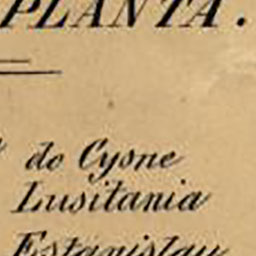 PLANTA.
do Cysne
Lusitania
Estanislau